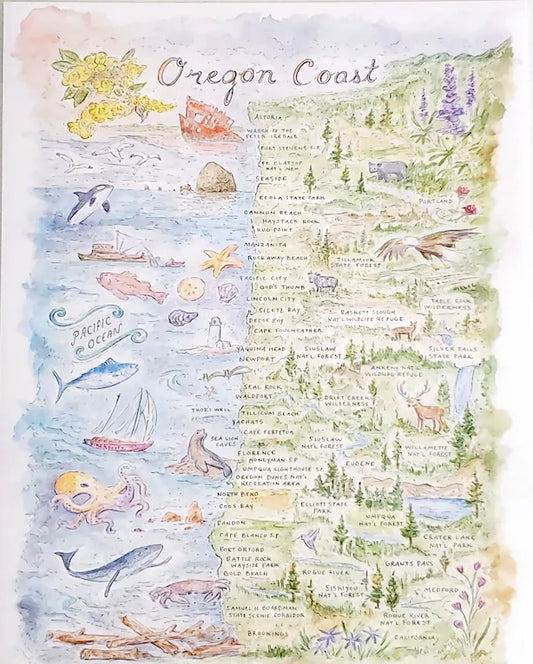 Oregon Coast
ASTORIA
WRECK OF THE
PETER IREDALE
FORT STEVENS S.P.
FT. CLATSOP
NAT'L MEM
SEASIDE
ECOLA STATE PARK
PORTLAND
CANNON BEACH
HAYSTACK ROCK
HUG POINT
MANZANITA
ROCKAWAY BEACH
TILLAMOOK
STATE FOREST
PACIFIC CITY
GOD'S THUMB
LINCOLN CITY
TABLE ROCK
WILDERNESS
SILETZ BAY
DEPOE BAY
BASKETT SLOUGH
NAT'L WILDLIFE REFUGE
CAPE FOULWEATHER
PACIFIC
OCEAN
YAQUINA HEAD
NEWPORT
SIUSLAW
NAT'L FOREST
SILVER FALLS
STATE PARK
ANKENY NAT'L
WILDLIFE REFUGE
SEAL ROCK
WALDPORT
DRIFT CREEK
WILDERNESS
THOR'S WELL
TILLICUM BEACH
YACHATS
CAPE PERPETUA
SEA LION
CAVES
SIUSLAW
NAT'L FOREST
WILLAMETTE
NAT'L FOREST
FLORENCE
HONEYMAN S.P.
EUGENE
UMPQUA LIGHTHOUSE S.P.
OREGON DUNES NAT'L
RECREATION AREA
NORTH BEND
COOS BAY
ELLIOTT STATE
PARK
BANDON
UMPQUA
NAT'L FOREST
CAPE BLANCO S.P.
CRATER LAKE
NAT'L PARK
PORT ORFORD
BATTLE ROCK
WAYSIDE PARK
GOLD BEACH
ROGUE RIVER
GRANTS PASS
SISKIYOU
NAT'L FOREST
MEDFORD
SAMUEL H BOARDMAN
STATE SCENIC CORRIDOR
ROGUE RIVER
NAT'L FOREST
BROOKINGS
CALIFORNIA